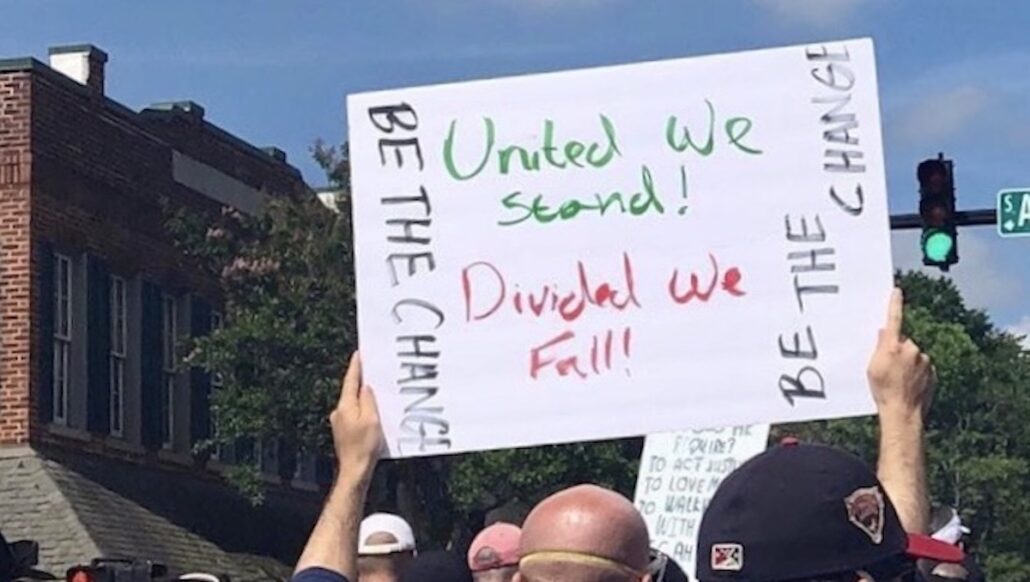 BE THE CHANGE
United We
stand!
Divided we
Fall!
BE THE CHANGE
TO ACT JUSTLY
TO LOVE
TO WALK
WITH
S